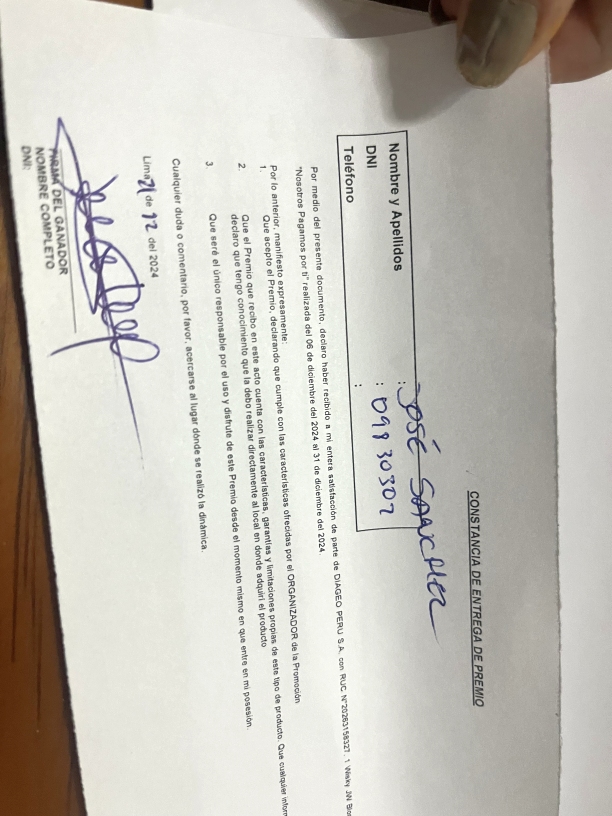 CONSTANCIA DE ENTREGA DE PREMIO
Nombre y Apellidos : JOSÉ SANCHEZ
DNI : 09830307
Teléfono :
Por medio del presente documento, declaro haber recibido a mi entera satisfacción de parte de DIAGEO PERU S.A. con RUC N°20263158327 , 1 Wisky JW
"Nosotros Pagamos por ti" realizada del 06 de diciembre del 2024 al 31 de diciembre del 2024.
Por lo anterior, manifiesto expresamente:
1. Que acepto el Premio, declarando que cumple con las características ofrecidas por el ORGANIZADOR de la Promoción
2. Que el Premio que recibo en este acto cuenta con las características, garantías y limitaciones propias de este tipo de producto. Que cualquier
declaro que tengo conocimiento que la debo realizar directamente al local en donde adquirí el producto
3. Que seré el único responsable por el uso y disfrute de este Premio desde el momento mismo en que entre en mi posesión.
Cualquier duda o comentario, por favor, acercarse al lugar dónde se realizó la dinámica.
Lima 21 de 12 del 2024
FIRMA DEL GANADOR
NOMBRE COMPLETO
DNI: